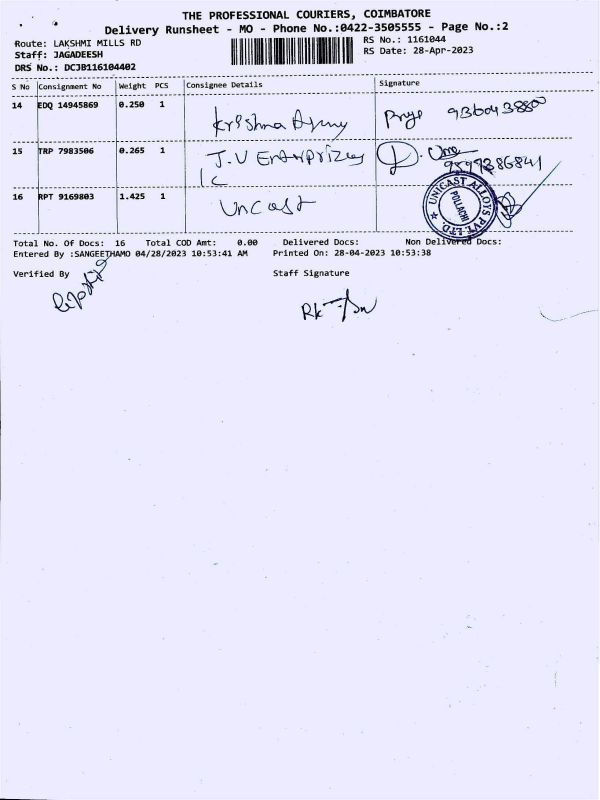 THE PROFESSIONAL COURIERS, COIMBATORE
Delivery Runsheet - MO - Phone No.:0422-3505555 - Page No.:2
Route: LAKSHMI MILLS RD
RS No.: 1161044
Staff: JAGADEESH
RS Date: 28-Apr-2023
DRS No.: DCJB116104402
S No Consignment No Weight PCS Consignee Details Signature
14 EDQ 14945869 0.250 1
Krishna Agency
15 TRP 7983506 0.265 1 J.V Enterprizes
16 RPT 9169803 1.425 1 Uncast
UNICAST ALLOYS PVT. LTD. POLLACHI
Total No. Of Docs: 16 Total COD Amt: 0.00 Delivered Docs: Non Delivered Docs:
Entered By :SANGEETHAMO 04/28/2023 10:53:41 AM Printed On: 28-04-2023 10:53:38
Verified By Staff Signature